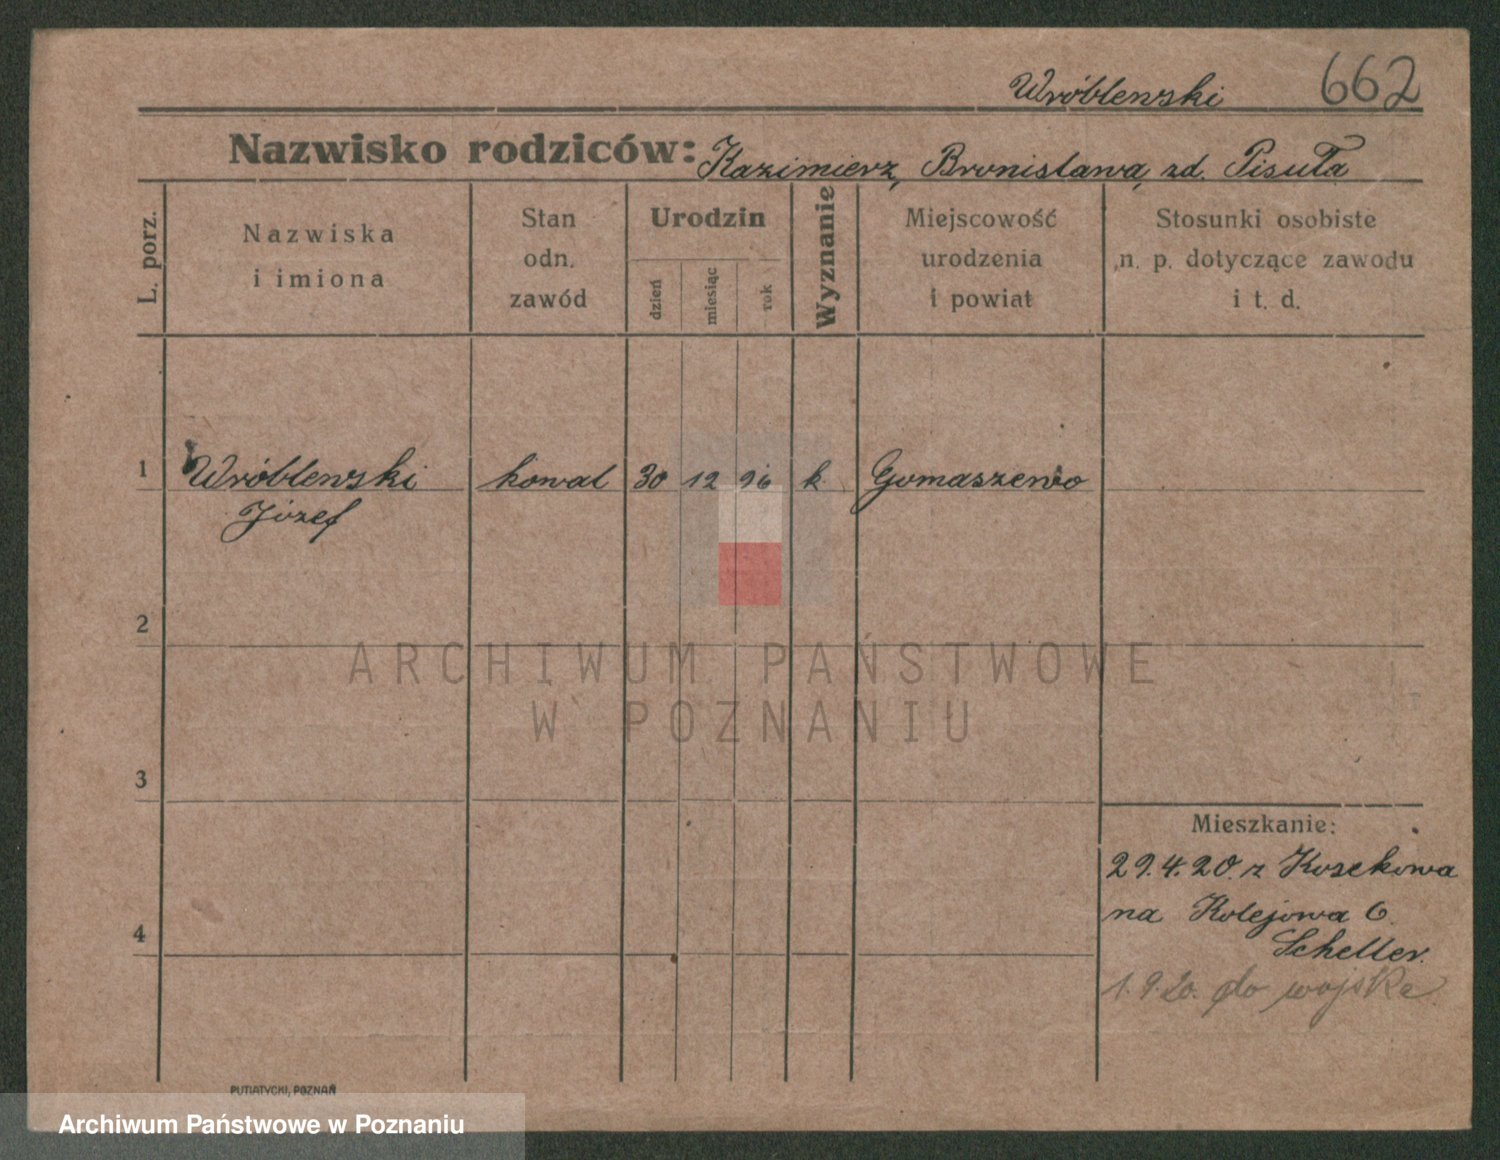 Wróblewski 662
Nazwisko rodziców: Kazimierz, Bronisława, zd. Pisuła
L. porz.
Nazwiska
i imiona
Stan
odn.
zawód
Urodzin
dzień
miesiąc
rok
Wyznanie
Miejscowość
urodzenia
i powiat
Stosunki osobiste
n. p. dotyczące zawodu
i t. d.
1 Wróblewski kowal 30 12 96 k. Gomaszewo
Józef
2
ARCHIWUM PAŃSTWOWE
W POZNANIU
3
Mieszkanie:
29.4.20. z Kosekowa
na Kolejowa 6.
4
Scheller.
1.9.20. do wojska
PUTIATYCKI, POZNAŃ
Archiwum Państwowe w Poznaniu